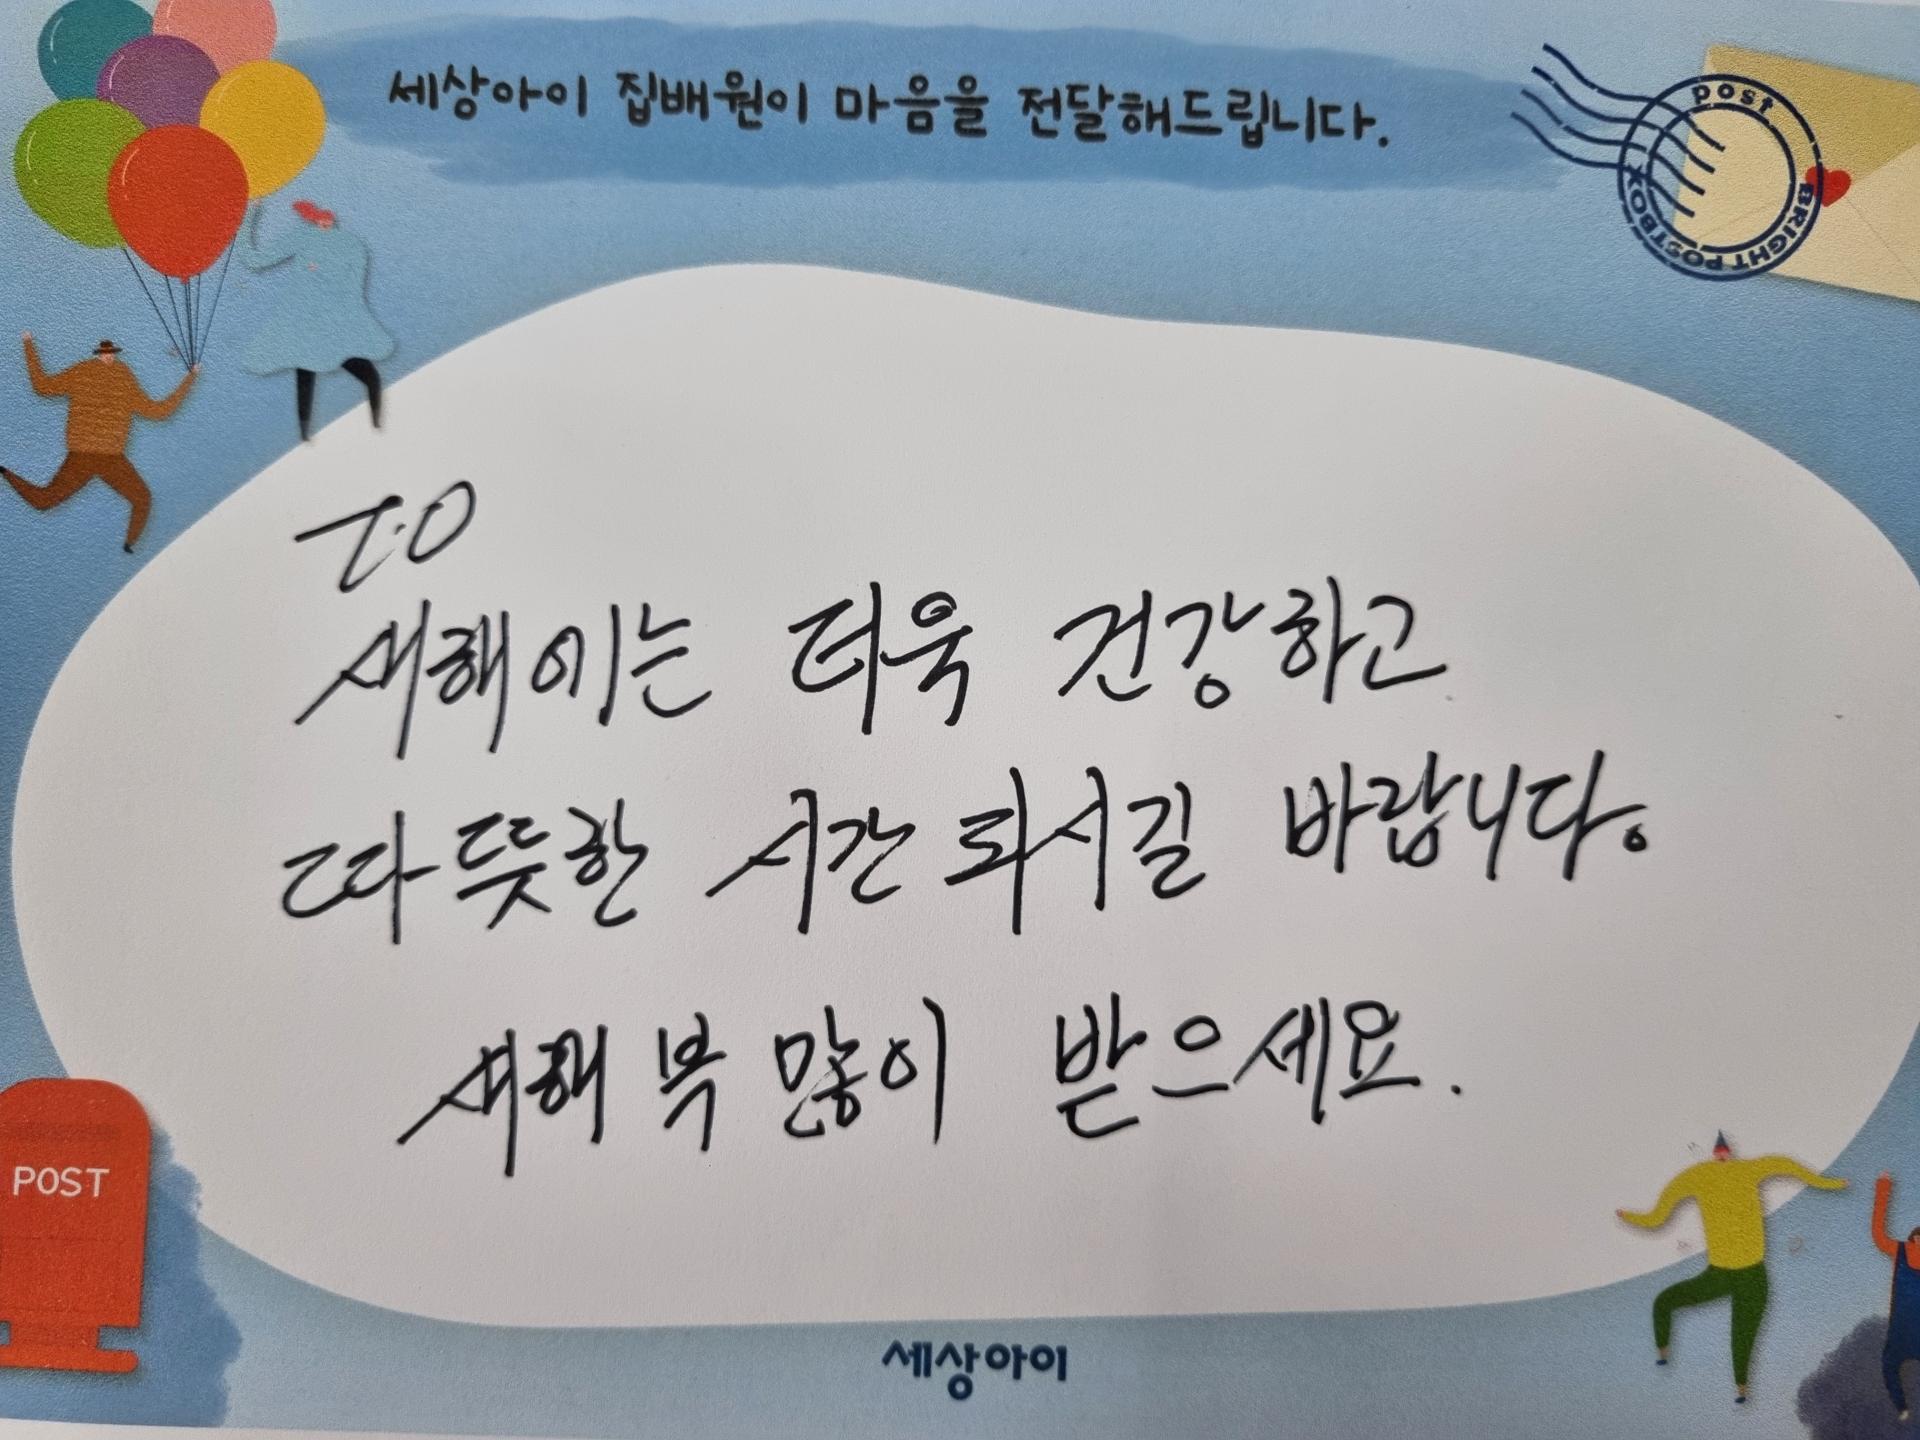 세상아이 집배원이 마음을 전달해드립니다.
post
BRIGHT POSTBOX
TO
새해에는 더욱 건강하고
따뜻한 시간 되시길 바랍니다.
새해 복 많이 받으세요.
POST
세상아이